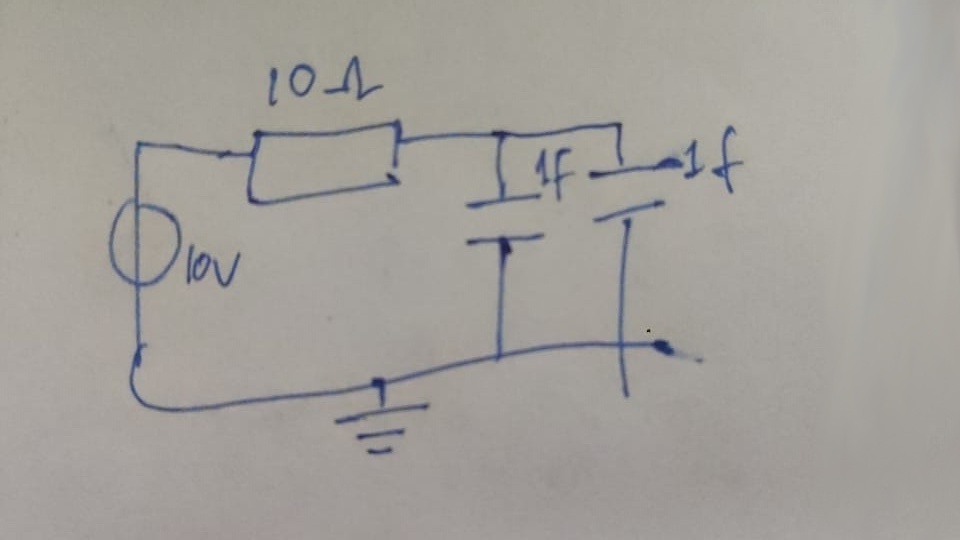 10Ω
1F
1f
10V